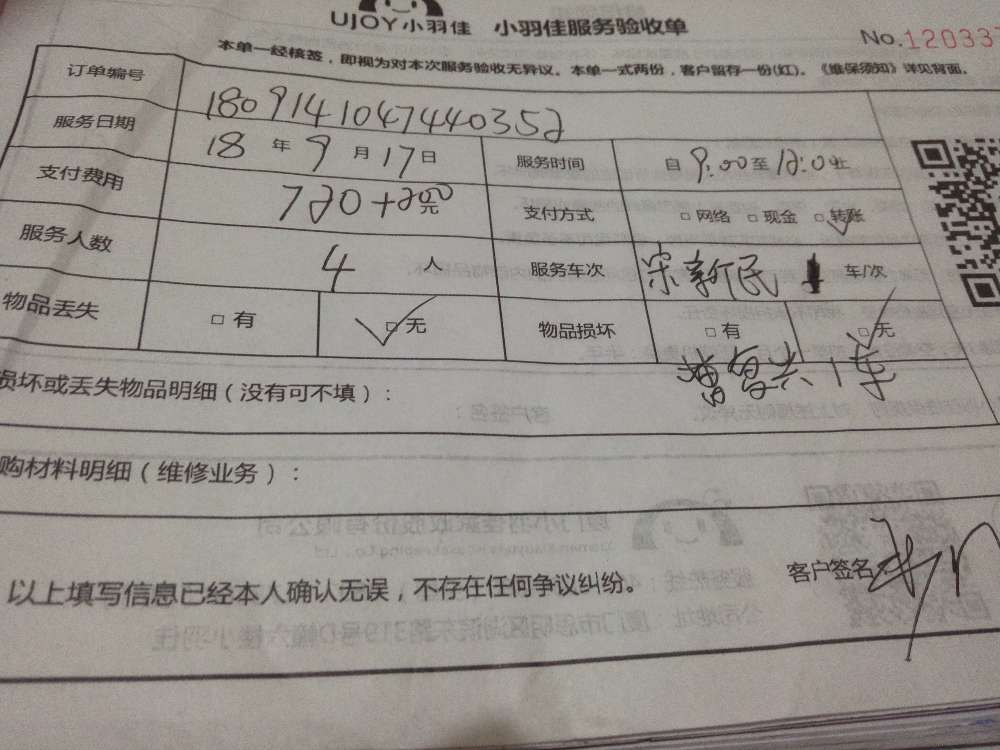 UJOY小羽佳 小羽佳服务验收单
No.120337
本单一经核签，即视为对本次服务验收无异议。本单一式两份，客户留存一份(红)。《维保须知》详见背面。
订单编号 1809141047440352
服务日期 18年9月17日 服务时间 自9:00至12:00止
支付费用 720+200元 支付方式 □网络 □现金 □转账
服务人数 4人 服务车次 宋新民 1 车/次
物品丢失 □有 □无 物品损坏 □有 □无
共1车
损坏或丢失物品明细（没有可不填）：
购材料明细（维修业务）：
以上填写信息已经本人确认无误，不存在任何争议纠纷。 客户签名